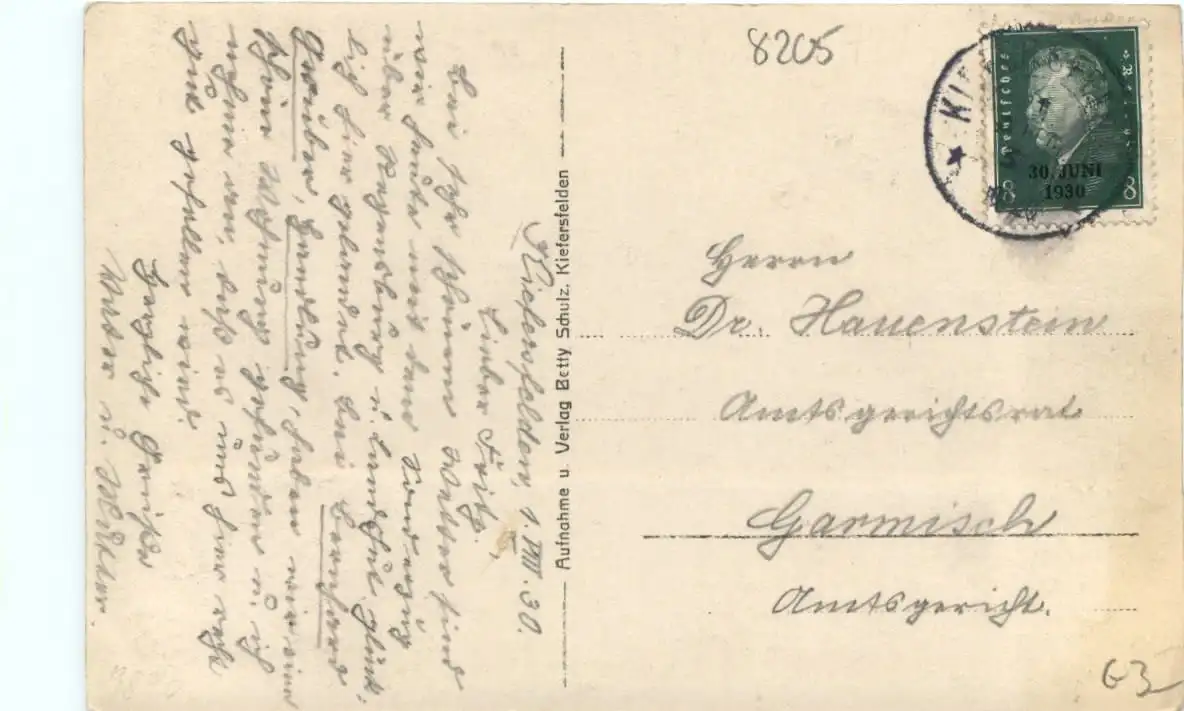 8205
KIE
Deutsches Reich
30. JUNI
1930
8 8
Herrn
Dr. Hauenstein
Amtsgerichtsrat
Garmisch
Amtsgericht.
G3
Aufnahme u. Verlag Betty Schulz, Kiefersfelden
Kiefersfelden, 1. VIII. 30.
Lieber Fritz.
Bei sehr schönem Wetter sind
wir heute mit dem Sonderzug
über Regensburg u. Landshut glück-
lich hier gelandet. Bei Bernhard
Gruber, haben wir eine
schöne Wohnung gefunden u. ich
nehme an, daß es uns hier recht
gut gefallen wird.
Herzliche Grüße
Vater u. Mutter.